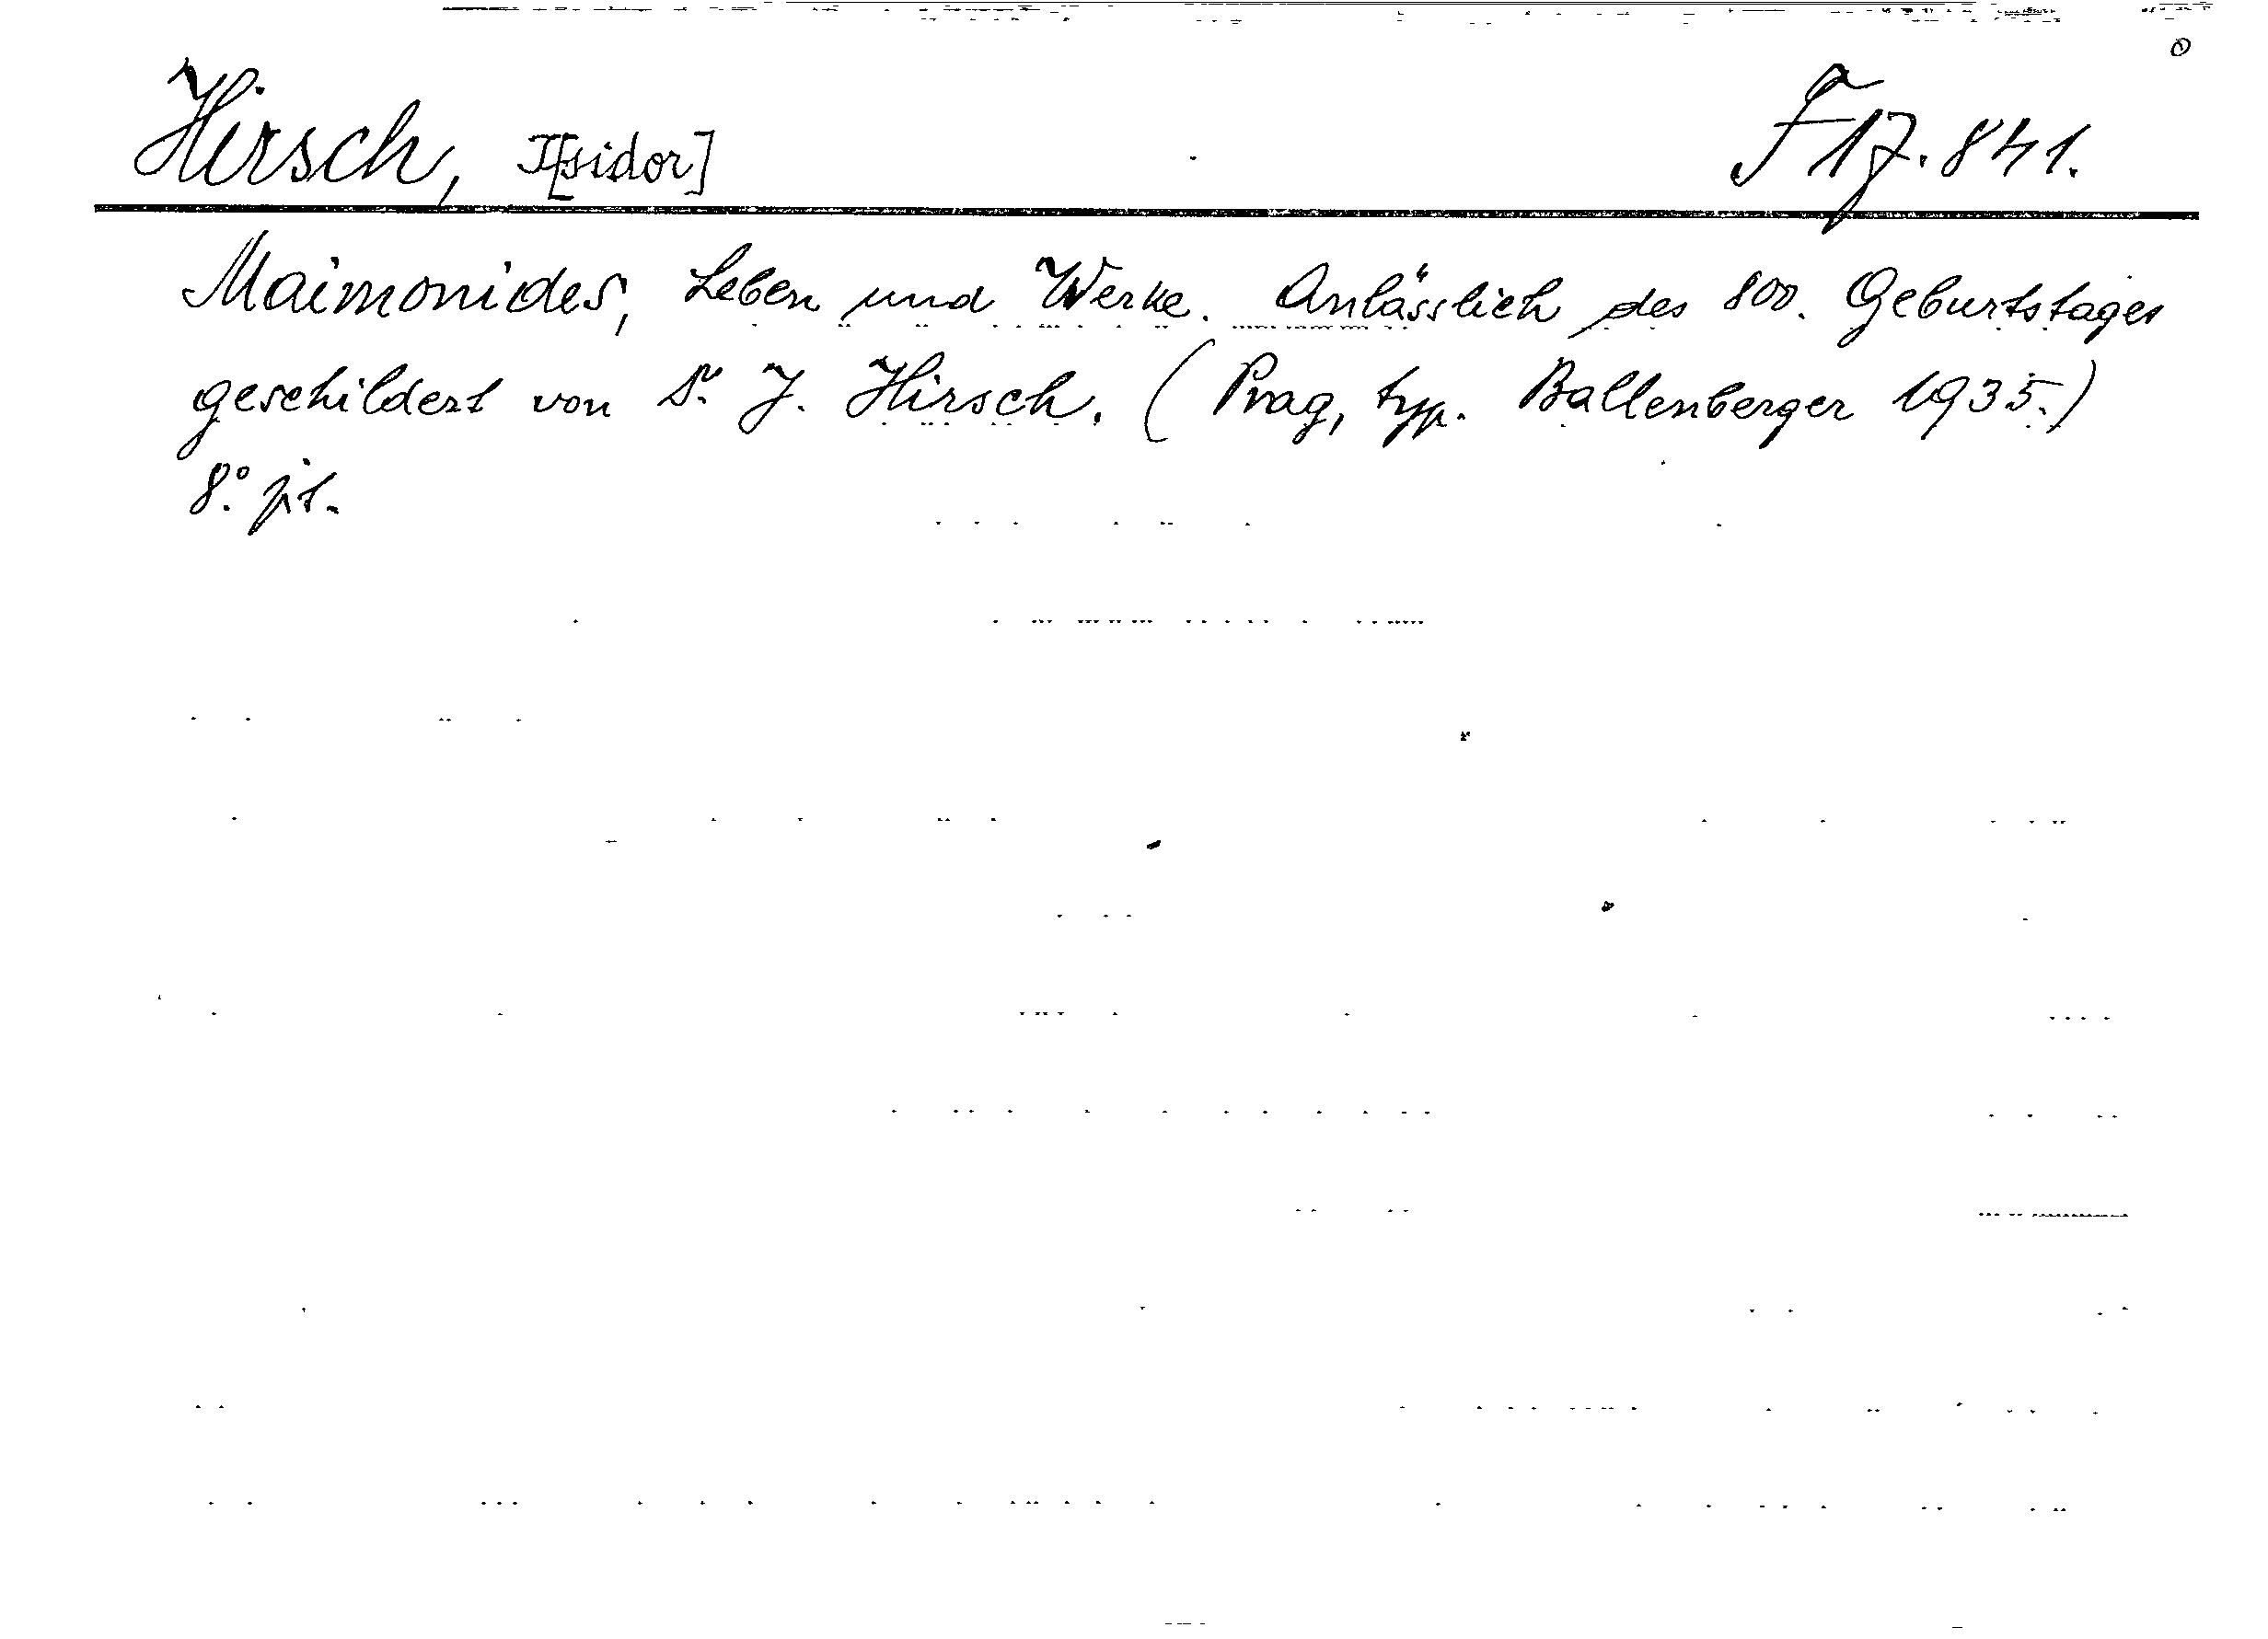 Hirsch, I[sidor] F 17.841.
Maimonides, Leben und Werke. Anlässlich des 800. Geburtstages
geschildert von Dr. J. Hirsch. (Prag, typ. Ballenberger 1935.)
8°.